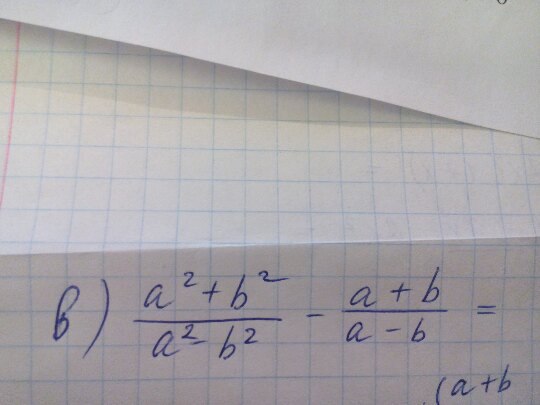 в) (a²+b²)/(a²-b²) - (a+b)/(a-b) =
(a+b